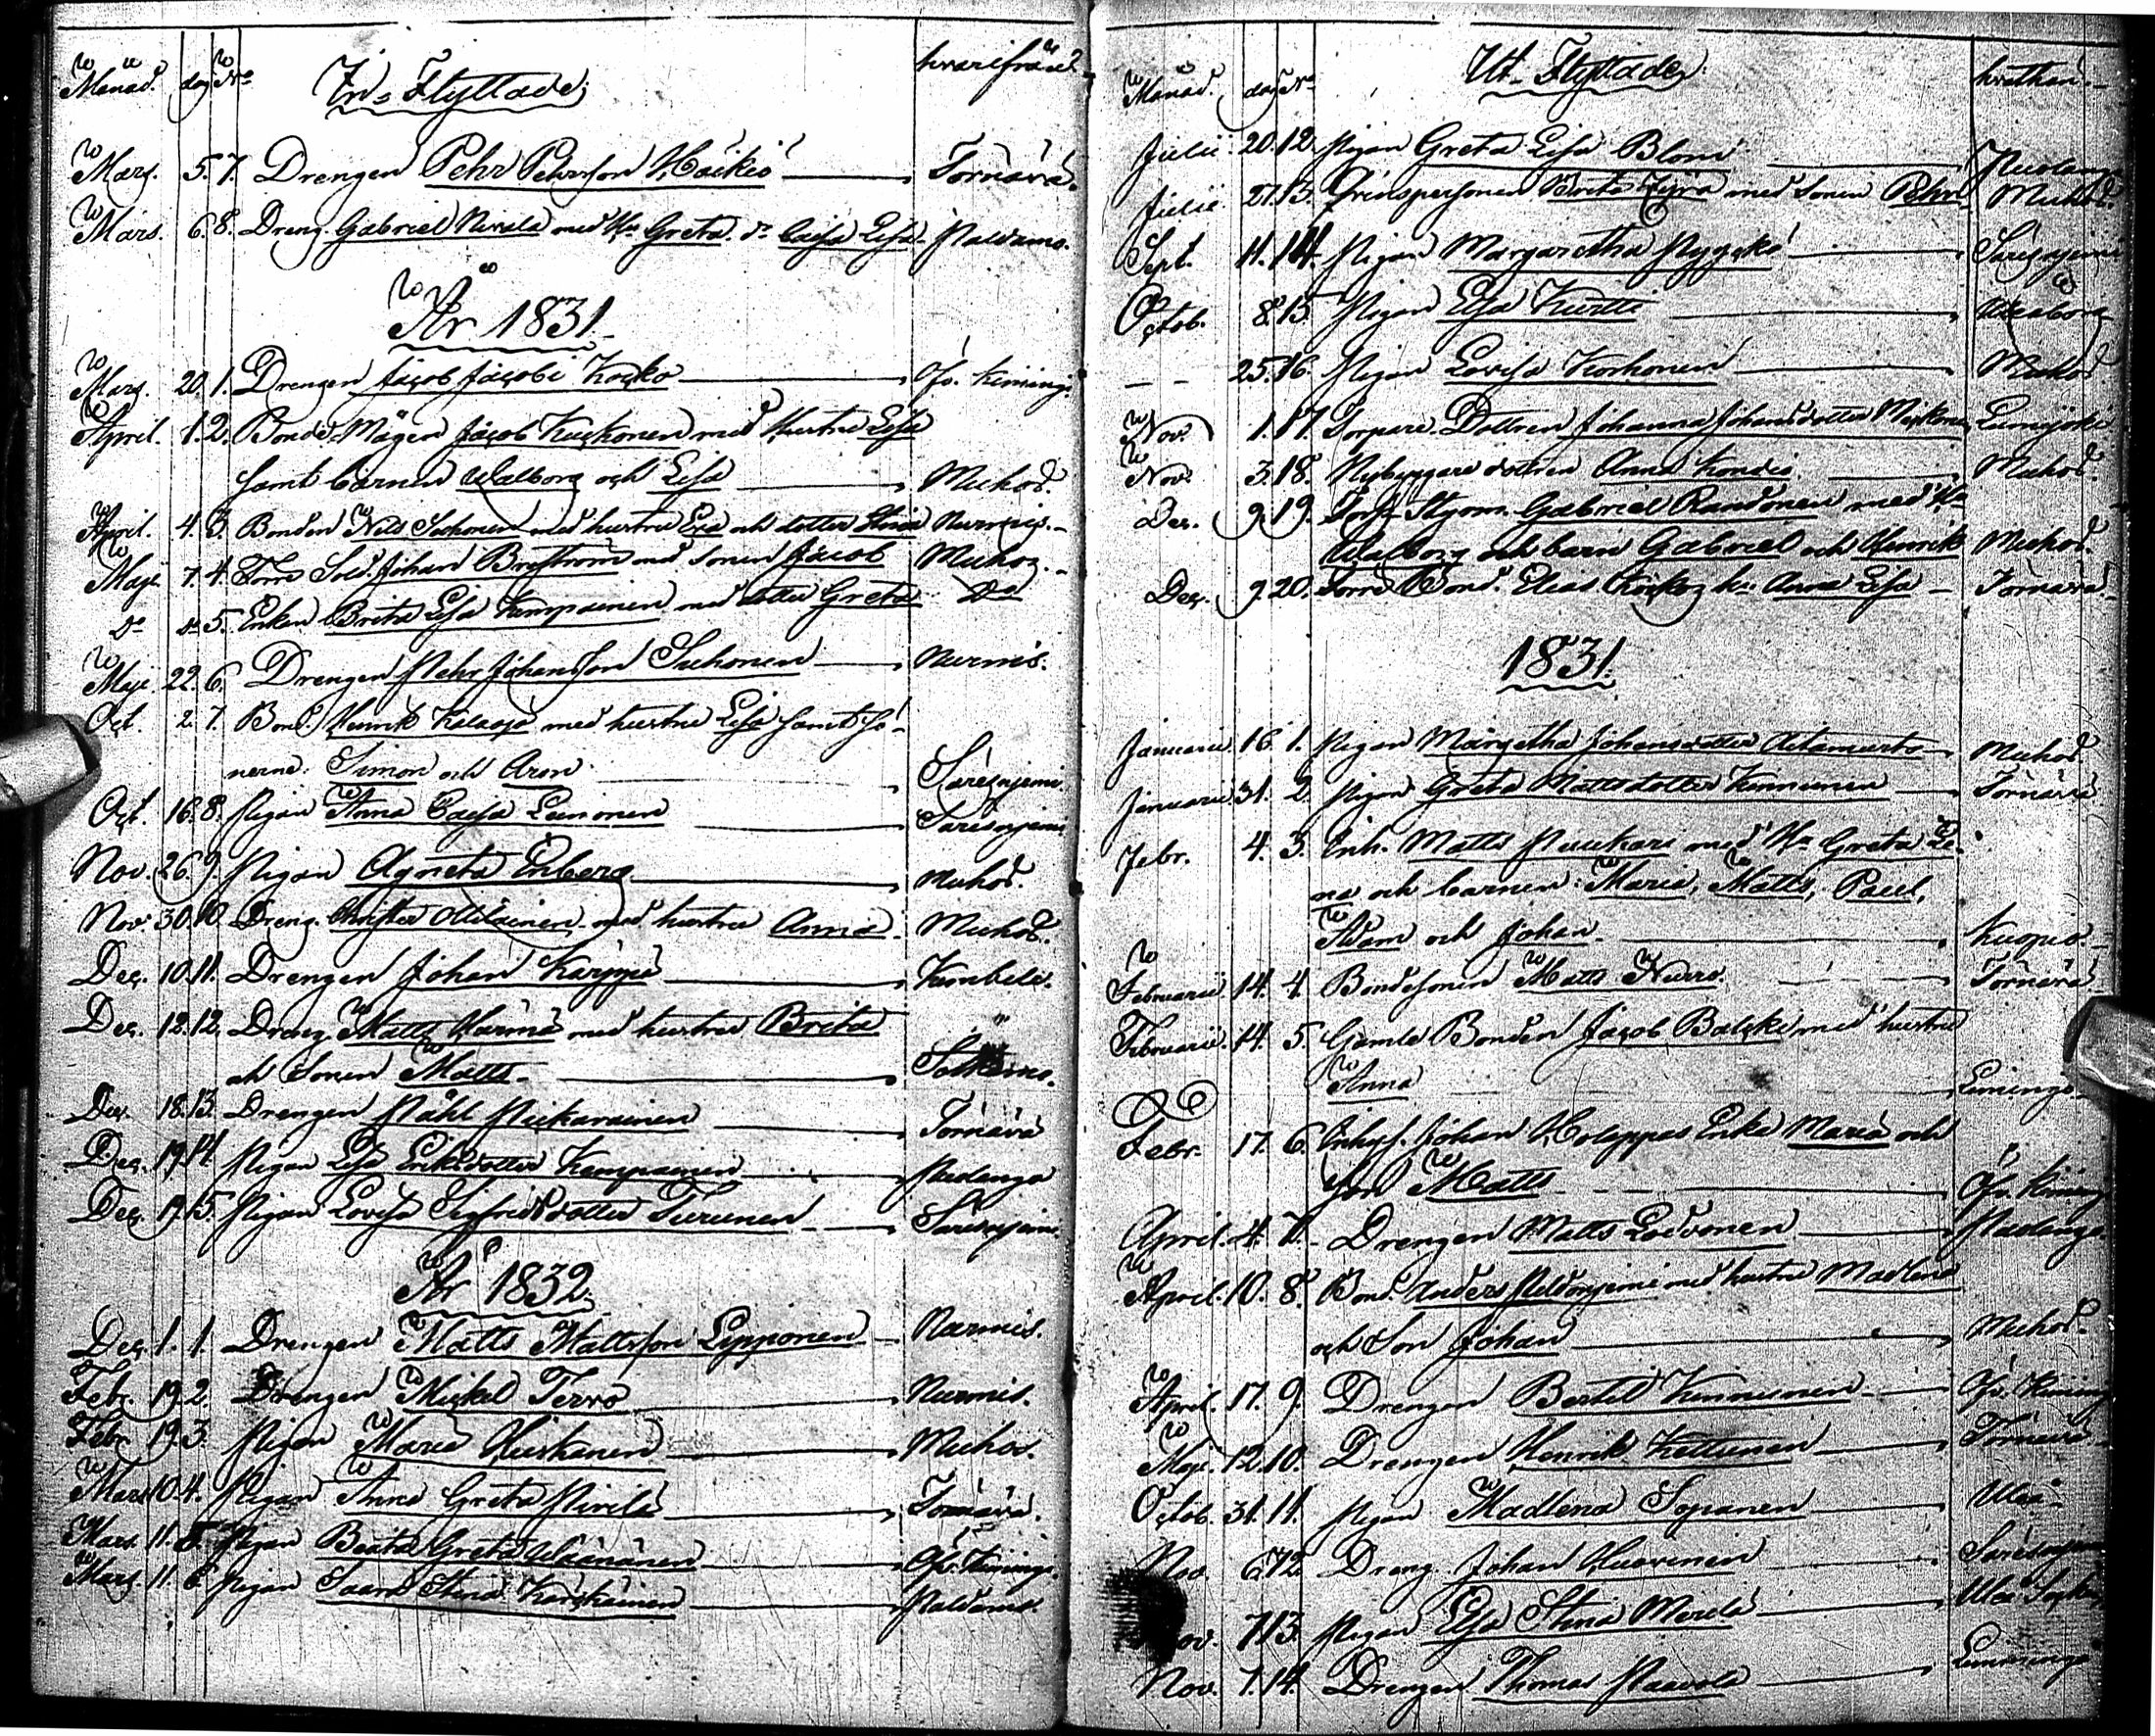 Månad. dag No In-Flyttade; hvarifrån
Mars. 5. 7. Drengen Pehr Pehrsson Häikiö Törnävä.
Mars. 6. 8. Dreng. Gabriel Nivala med Hu Greta. dr Caisa Lisa Paldamo.
År 1831.
Mars. 20. 1. Drengen Jacob Jacobi Kocko Öf. Kiming.
April. 1. 2. Bonde-Mågen Jacob Kuckonen med Hustru Lisa
samt barnen Walborg och Lisa Muhos.
April. 4. 3. Bonden Nils Sohonen med hustru Eva och dotter Stina Nurmis.
Maji 7. 4. Förre Sold. Johan Boström med sonen Jacob Muhos.
Do Do 5. Enkan Brita Lisa Kempainen med dotter Greta Do
Maji 22. 6. Drengen Pehr Johansson Suhonen Nurmis.
Oct. 2. 7. Bond. Henrik Kalaoja med hustru Lisa samt sö-
nerne: Simon och Aron Säresniemi.
Oct. 16. 8. Pigan Anna Caisa Leinonen Säresniemi
Nov. 26. 9. Pigan Agneta Enberg Muhos.
Nov. 30. 10. Dreng. Christer Mikainen med hustru Anna Muhos.
Dec. 10. 11. Drengen Johan Karppi Kembele.
Dec. 12. 12. Dreng Matts Härmä med hustru Brita
och Sonen Matts Sotkamo.
Dec. 18. 13. Drengen Påhl Pickarainen Törnävä
Dec. 19. 14. Pigan Lisa Eriksdotter Kempainen Pudengo
Dec. 19. 15. Pigan Lovisa Sigfridsdotter Turunen Säresniemi.
År 1832.
Dec. 1. 1. Drengen Matts Mattsson Lipponen Nurmis.
Febr. 19. 2. Drengen Mickel Tervo Nurmis.
Febr. 19. 3. Pigan Maria Huskanen Muhos.
Mars 10. 4. Pigan Anna Greta Pirilä Törnävä.
Mars. 11. 5. Pigan Beata Greta Wäänänen Öfv. Kiminge.
Mars. 11. 6. Pigan Saara Stina Karhainen Paldamo.
Månad. dag No Ut-Flyttade; hvarthän.
Julii 20. 12. Pigan Greta Lisa Blom Pudeng
Julii 27. 13. Qvinspersonen Brita Jyrä med Sonen Pehr Muhos.
Sept. 11. 14. Pigan Margaretha Pyyckö Säresniemi
Octob. 8. 15. Pigan Lisa Kurtti Uleåborg
25. 16. Pigan Lovisa Korhonen Muhos
Nov. 1. 17. Torpare-Dottren Johanna Johansdotter Mickonen Lumijoki
Nov. 3. 18. Nybyggare dottren Anna Kondio Muhos.
Dec. 9. 19. Gabriel Randonen med Hu
Walborg och barn Gabriel och Henrik Muhos.
Dec. 9. 20. Förre Bond. Elias Hu Anna Lisa Törnävä
1831.
Januarii 16. 1. Pigan Margetha Johansdotter Aitamurto Muhos
Januarii 31. 2. Pigan Greta Mattsdotter Kinnunen Törnävä
Febr. 4. 3. Inh. Matts Pirukari med Hu Greta Le-
na och barnen: Maria, Matts, Paul,
Adam och Johan. Kuopio.
Februarii. 14. 4. Bondesonen Matts Nurro. Törnävä
Februarii. 14. 5. Gamle Bonden Jacob Balcki med hustru
Anna Limingo
Febr. 17. 6. Inhys. Johan Holappas Enka Maria och
son Matts Öfv. Kiming
April. 4. 7. Drengen Matts Lodvonen Pudengo
April. 10. 8. Bond. Anders Peldoniemi med hustru Madlena
och Son Johan Muhos.
April. 17. 9. Drengen Bertil Kinnunen Öfv. Kiming
Maji. 12. 10. Drengen Henrik Kettunen Törnävä
Octob. 31. 11. Pigan Madlena Sopanen Uleå
Nov. 6. 12. Dreng. Johan Huovinen Säresniemi
Nov. 7. 13. Pigan Lisa Stina Merilä Uleå
Nov. 7. 14. Drengen Thomas Paavola Limmingo